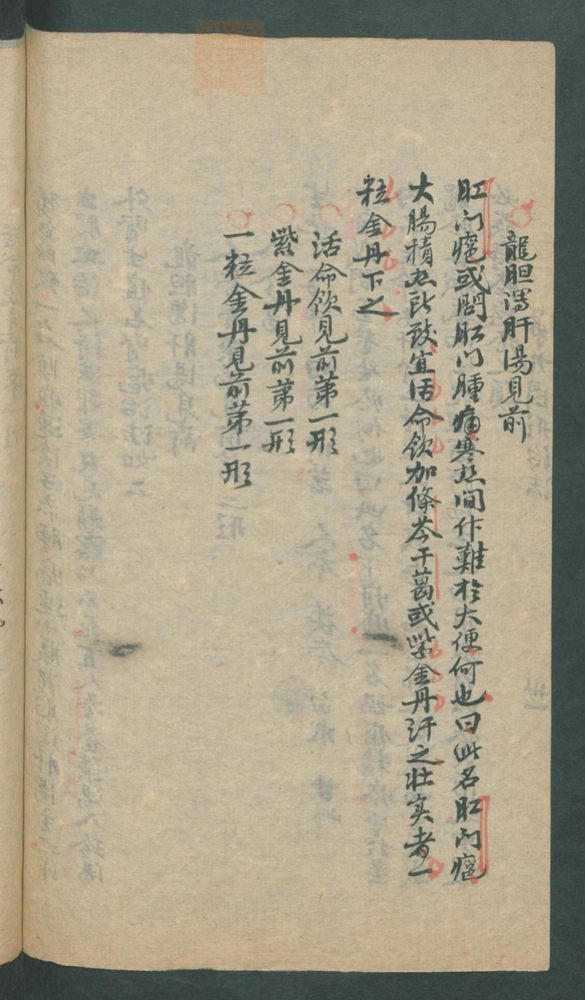 龍胆瀉肝湯見前
肛门癰或問肛门腫痛寒热间作難於大便何也曰此名肛门癰
大腸積热所致宜活命飲加條芩干葛或紫金丹汗之壮实者一
粒金丹下之
活命飲見前第一形
紫金丹見前第一形
一粒金丹見前第一形